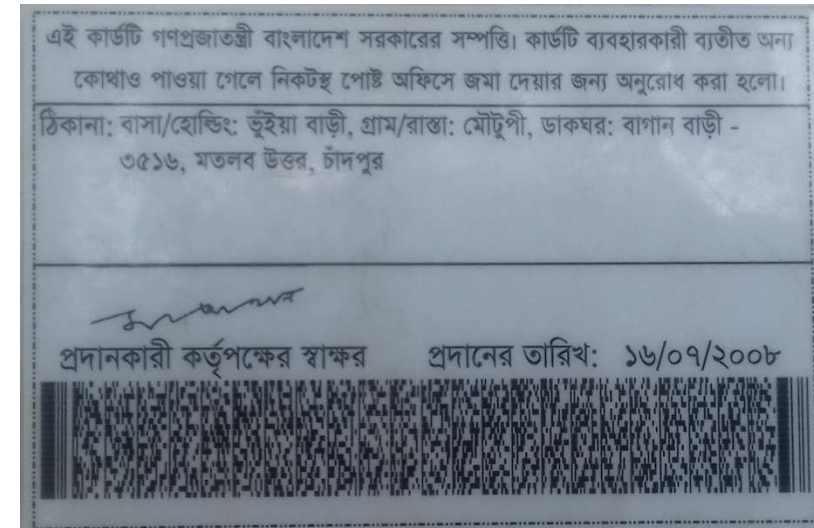 এই কার্ডটি গণপ্রজাতন্ত্রী বাংলাদেশ সরকারের সম্পত্তি। কার্ডটি ব্যবহারকারী ব্যতীত অন্য
কোথাও পাওয়া গেলে নিকটস্থ পোষ্ট অফিসে জমা দেয়ার জন্য অনুরোধ করা হলো।
ঠিকানা: বাসা/হোল্ডিং: ভূঁইয়া বাড়ী, গ্রাম/রাস্তা: মৌটুপী, ডাকঘর: বাগান বাড়ী -
৩৫১৬, মতলব উত্তর, চাঁদপুর
প্রদানকারী কর্তৃপক্ষের স্বাক্ষর প্রদানের তারিখ: ১৬/০৭/২০০৮